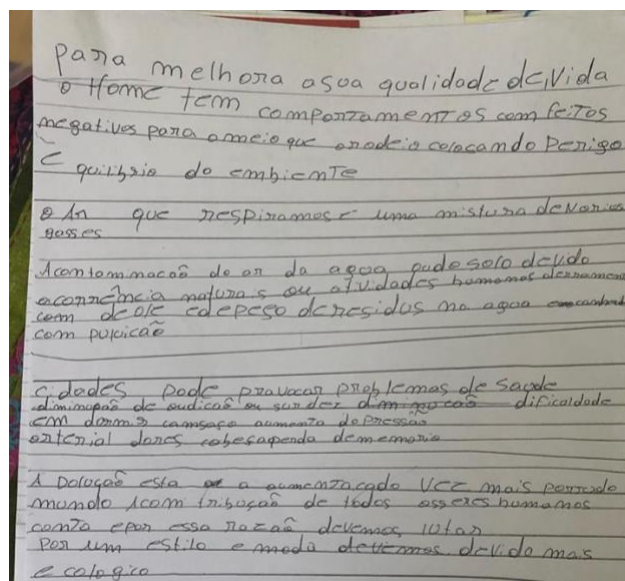 para melhora asua qualidade de Vida
o Home tem comportamentos com feitos
negativos para o meio que o rodeio colocando Perigo
E quilibrio do embiente
O Ar que respiramos e uma mistura de Varios
gasses
A contaminacaõ do ar da agua ou de solo devido
a corrência naturais ou atvidades humamas derramamen
com de ole edepeso de residos na agua
com puluicaõ
cidades pode pravocar problemas de saude
diminuipaõ de audicaõ ou surdez dificaldade
em dormir camsaço aumento do pressaõ
arterial dores cabesa penda de memoria
A poluçaõ esta a aumentacado Vez mais por todo
mundo A com tribuçaõ de todos os seres humamos
conta e por essa razaõ devemos lutar
Por um estilo e moda devemos de vido mais
e cologico